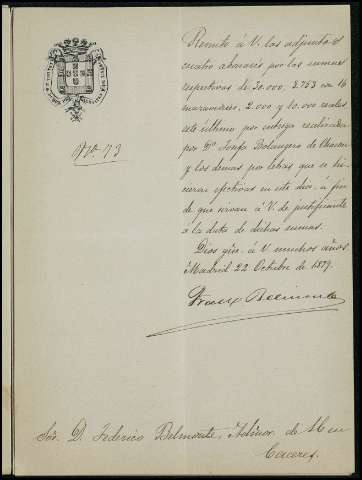 Nº. 73
Remito á V. los adjuntos
cuatro abonarés por las sumas
respectivas de 30.000, 3.753 con 16
maravedises, 2.000 y 10.000 reales
este último por entrega realizada
por Dª Josefa Bolangero de Chacon
y los demas por letras que se hi-
cieran efectivas en este dia, á fin
de que sirvan á V. de justificante
á la data de dichas sumas.
Dios gue. á V. muchos años
Madrid 22 Octubre de 1879.
Franco Belmonte
Sor. D. Federico Belmonte, Admor. de M en
Caceres.